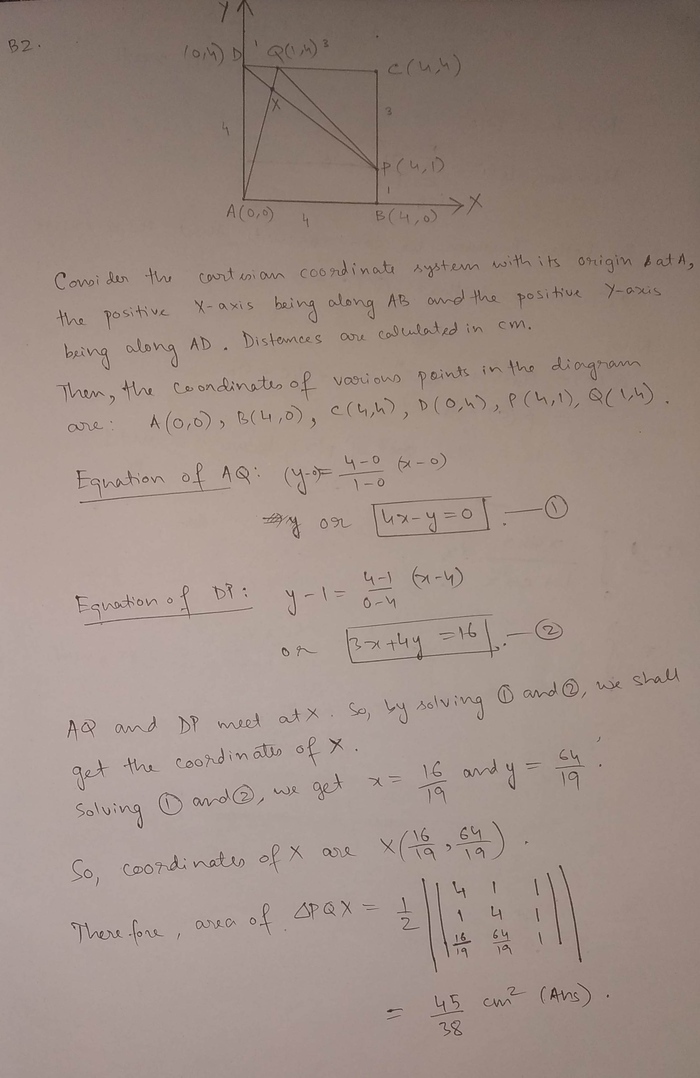 B2.
Y
(0,4) D 1 Q(1,4) 3
C(4,4)
X
3
4
P(4,1)
1
A(0,0) 4 B(4,0) X
Consider the cartesian coordinate system with its origin at A,
the positive X-axis being along AB and the positive Y-axis
being along AD. Distances are calculated in cm.
Then, the coordinates of various points in the diagram
are: A(0,0), B(4,0), C(4,4), D(0,4), P(4,1), Q(1,4).
Equation of AQ: (y-0)= 4-0/1-0 (x-0)
or 4x-y=0. —①
Equation of DP: y-1= 4-1/0-4 (x-4)
or 3x+4y=16. —②
AQ and DP meet at X. So, by solving ① and ②, we shall
get the coordinates of X.
Solving ① and ②, we get x= 16/19 and y= 64/19.
So, coordinates of X are X(16/19, 64/19).
Therefore, area of ΔPQX = 1/2 || 4 1 1
1 4 1
16/19 64/19 1 ||
= 45/38 cm² (Ans).